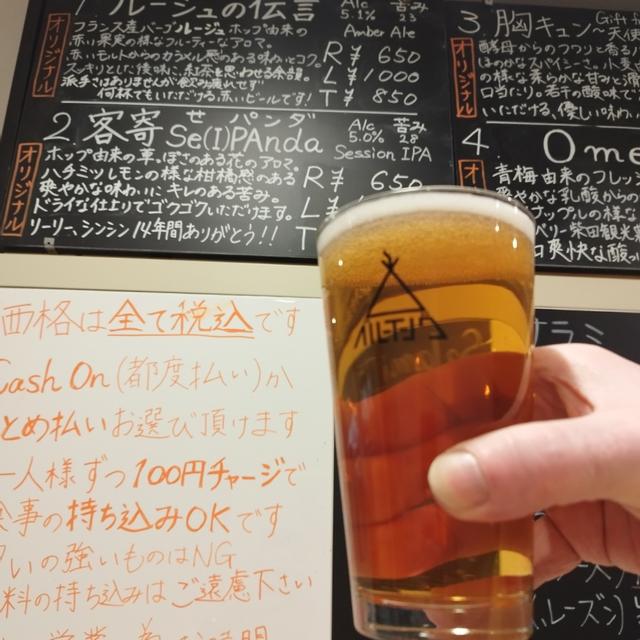 1. ルージュの伝言 Alc 5.1% 苦み 23
オリジナル
フランス産バーブルージュホップ由来の
Amber Ale
赤い果実の様なフルーティーなアロマ。
赤いモルトからのカラメル感のある味わいとコク。
スッキリとした後味に紅茶を思わせる余韻。
派手さはありませんが飲み疲れせず
何杯でもいただける、赤いビールです!
R ¥ 650
L ¥ 1000
T ¥ 850
2. 客寄せパンダ Se(I)PAnda Alc 5.0% 苦み 28
オリジナル
Session IPA
ホップ由来の草っぽさのある花のアロマ。
ハチミツレモンの様な柑橘感のある
爽やかな味わいに、キレのある苦み。
ドライな仕上りでゴクゴクいただけます。
リーリー、シンシン14年間ありがとう!!
R ¥ 650
L ¥
T
3. 胸キュン 天使
Gift
オリジナル
酵母からのフワリと香る
ほのかなスパイシーさ。小麦
の様な柔らかな甘みと滑
口当たり。若干の酸味で
いただける、優しい味わい
4. Ome
青梅由来のフレッシ
爽やかな乳酸からの
ップルの様な
ベリー柴田観光
爽快な酸っ
価格は全て税込です
Cash On (都度払い)か
まとめ払いお選び頂けます
一人様ずつ100円チャージで
食事の持ち込みOKです
匂いの強いものはNG
料の持ち込みはご遠慮下さい
サラミ
レーズン)